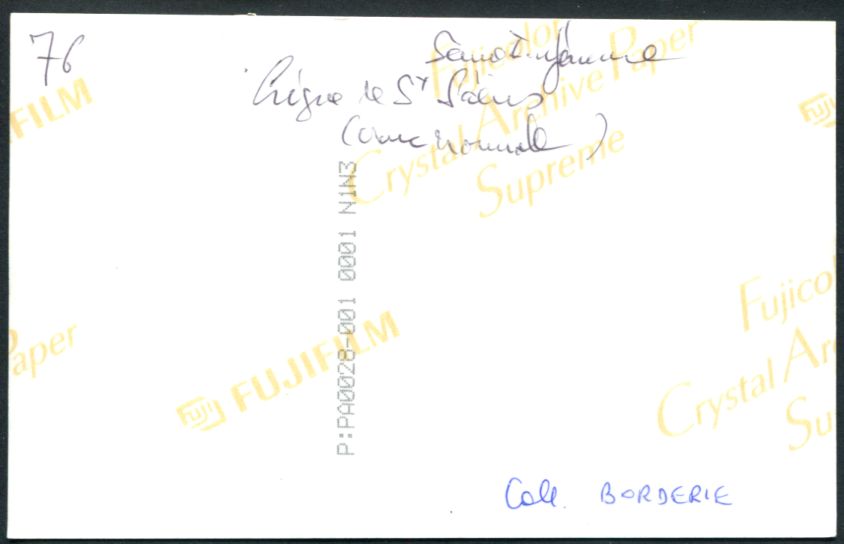 76
Ligne de St Saëns
(
)
FUJIFILM
Fujicolor
Crystal Archive Paper
Supreme
P:PA0028-001 0001 N1N3
Paper
FUJI FUJIFILM
Fujicolor
Crystal Arc
Su
Coll. BORDERIE